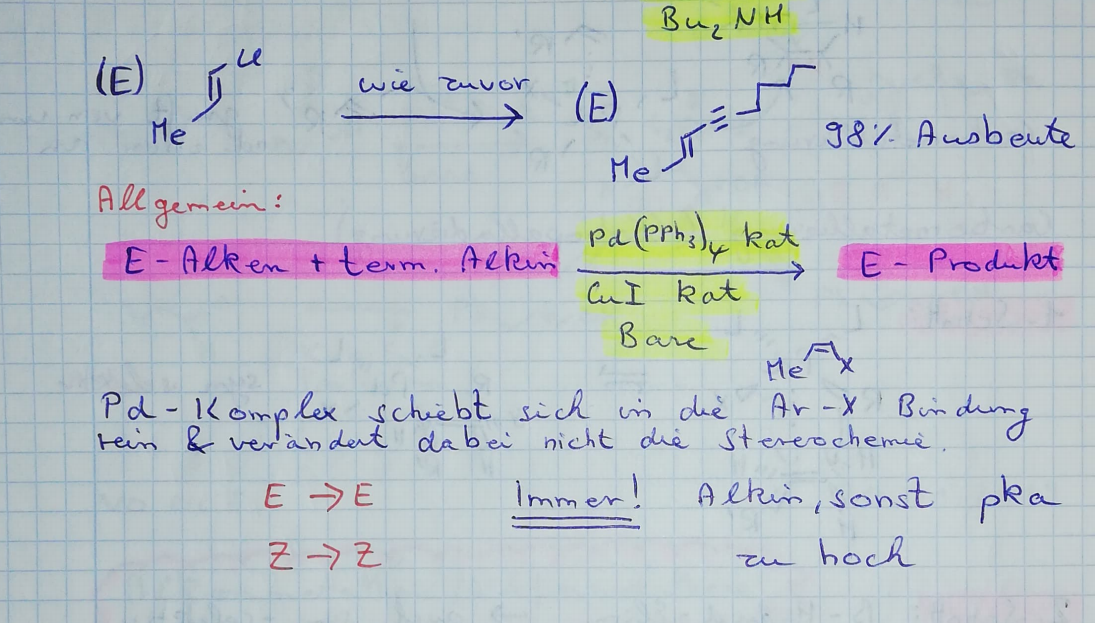 Bu₂NH
(E) Cl wie zuvor (E)
Me Me 98% Ausbeute
Allgemein:
E-Alken + term. Alkin Pd(PPh₃)₄ kat E-Produkt
CuI kat
Base
Me X
Pd-Komplex schiebt sich in die Ar-X Bindung
rein & verändert dabei nicht die Stereochemie.
E → E Immer! Alkin, sonst pka
Z → Z zu hoch